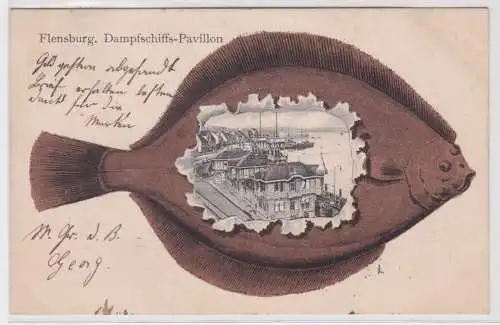 Flensburg, Dampfschiffs-Pavillon
Geld gestern abgesandt
Brief erhalten besten
dank für die
Marken
M. Gr. d. B.
Georg.